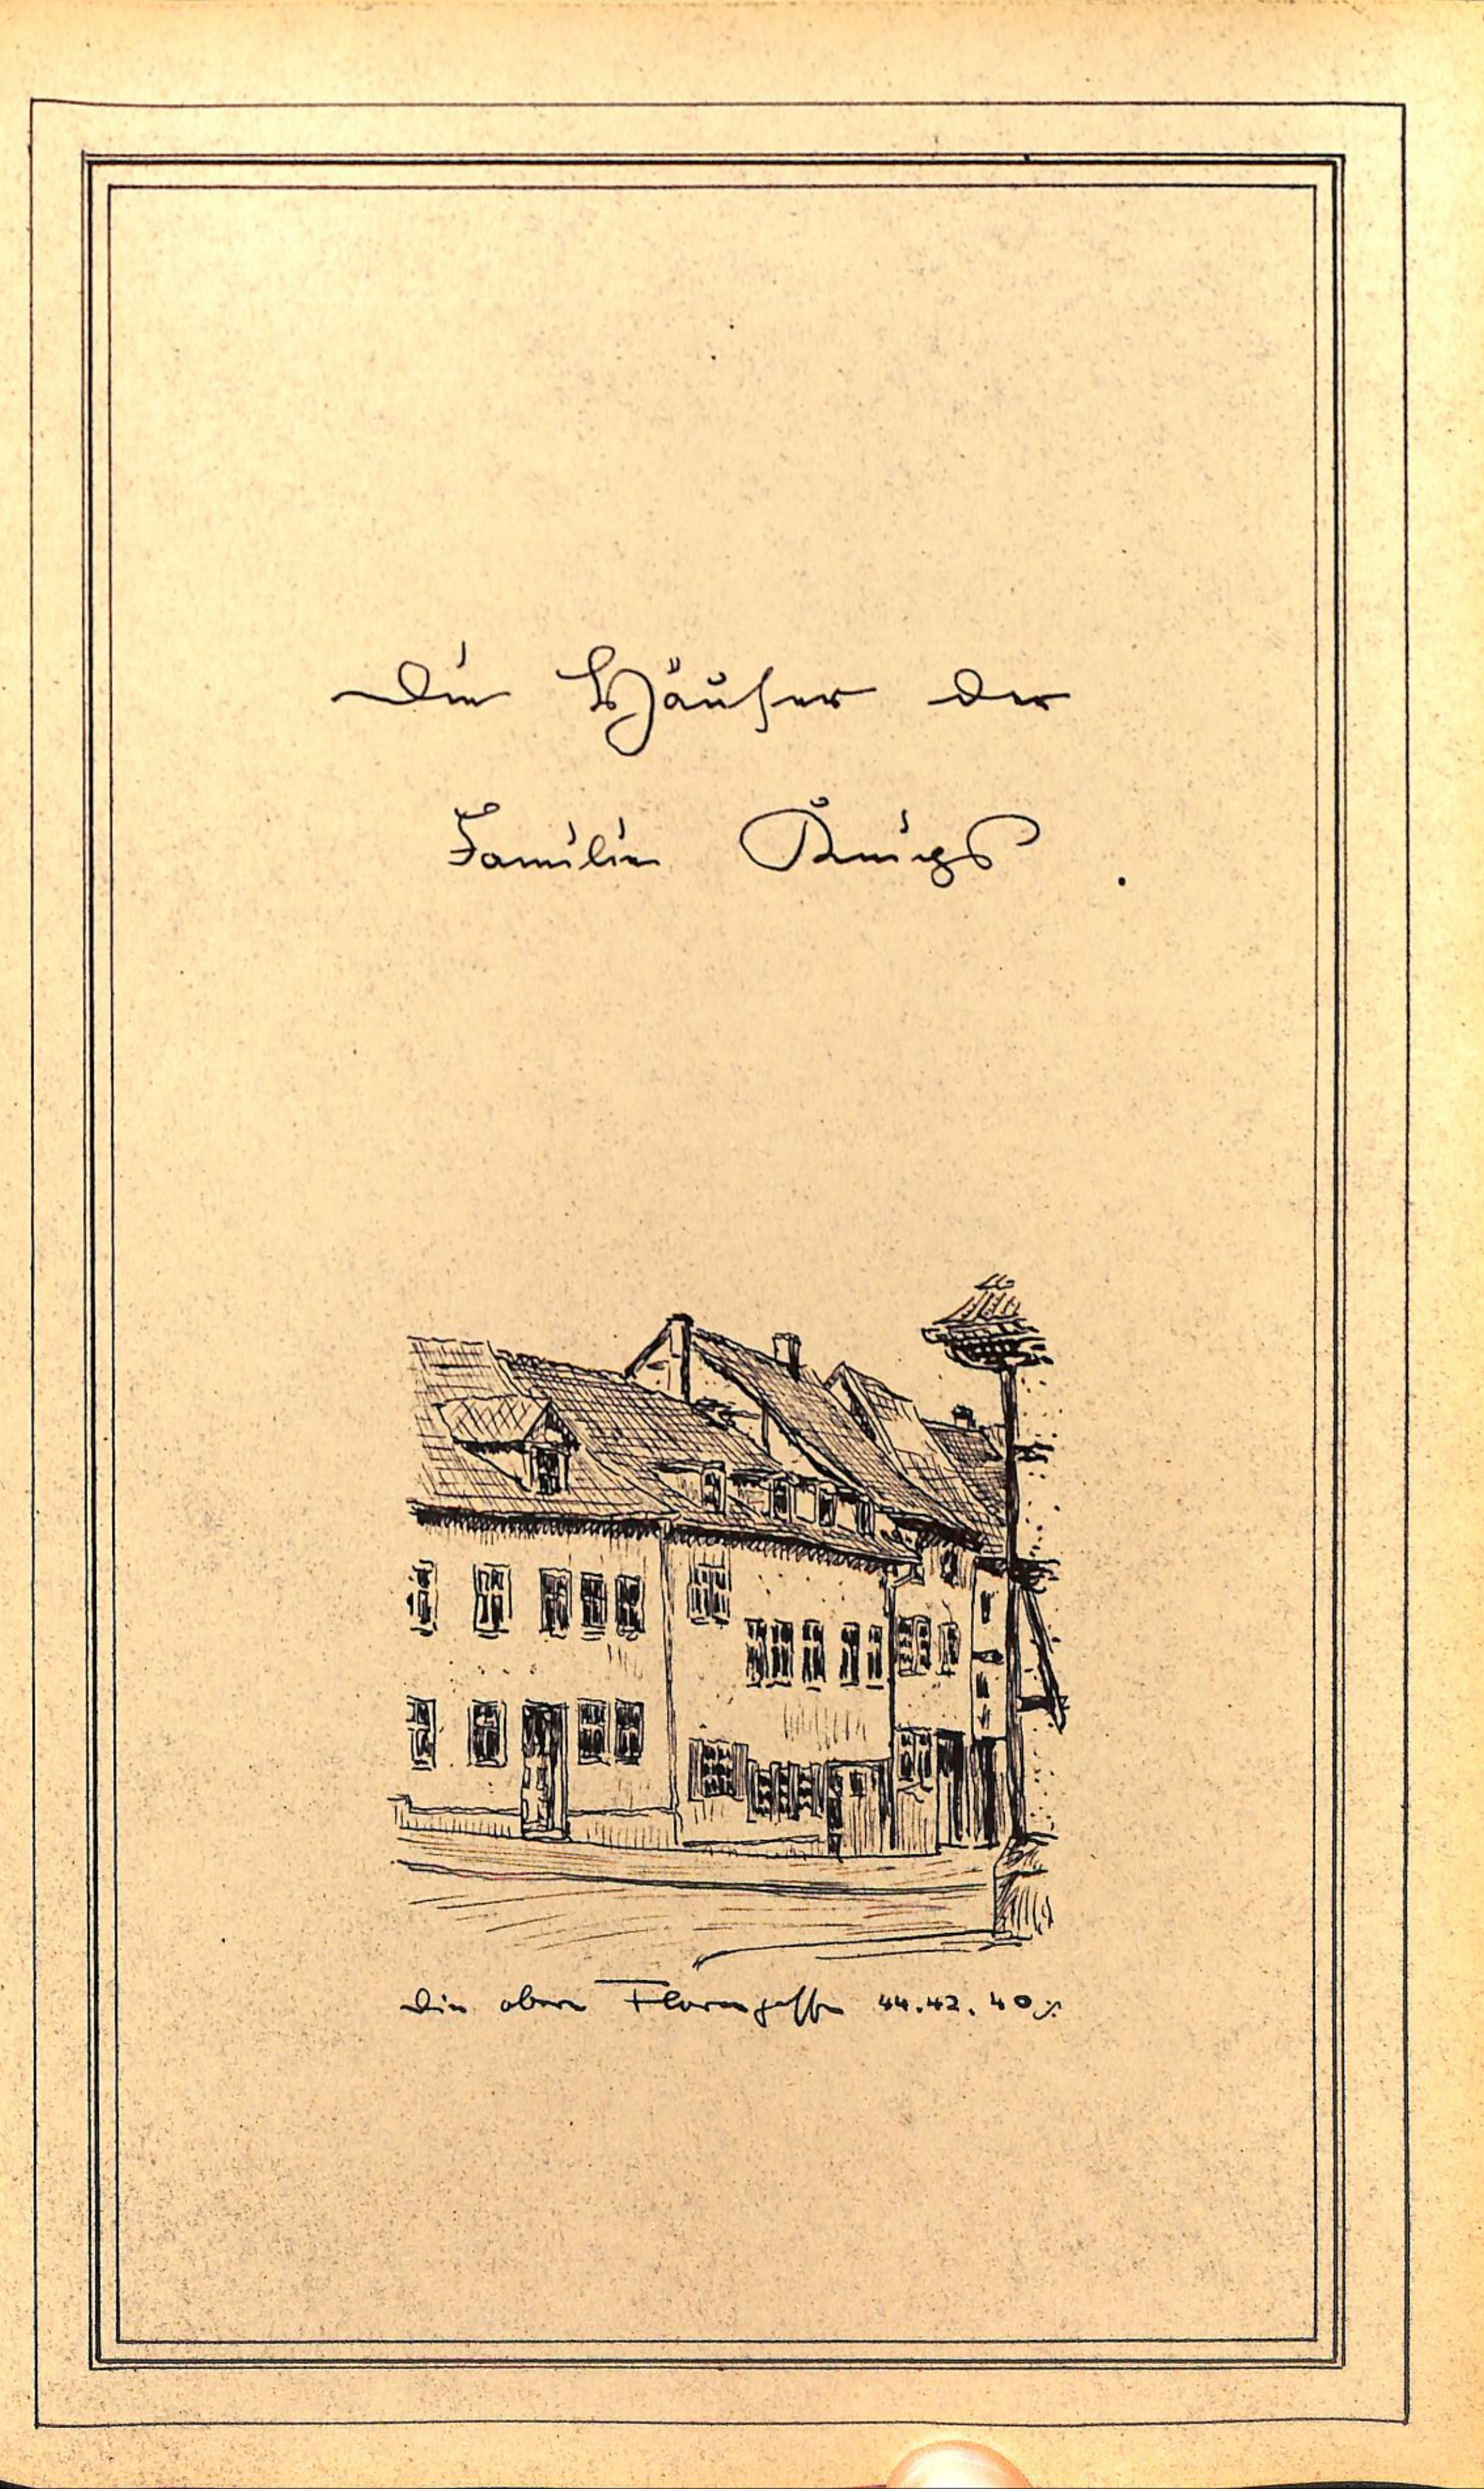 Die Häuser der
Familie
Die obere Florengasse 44.42.40